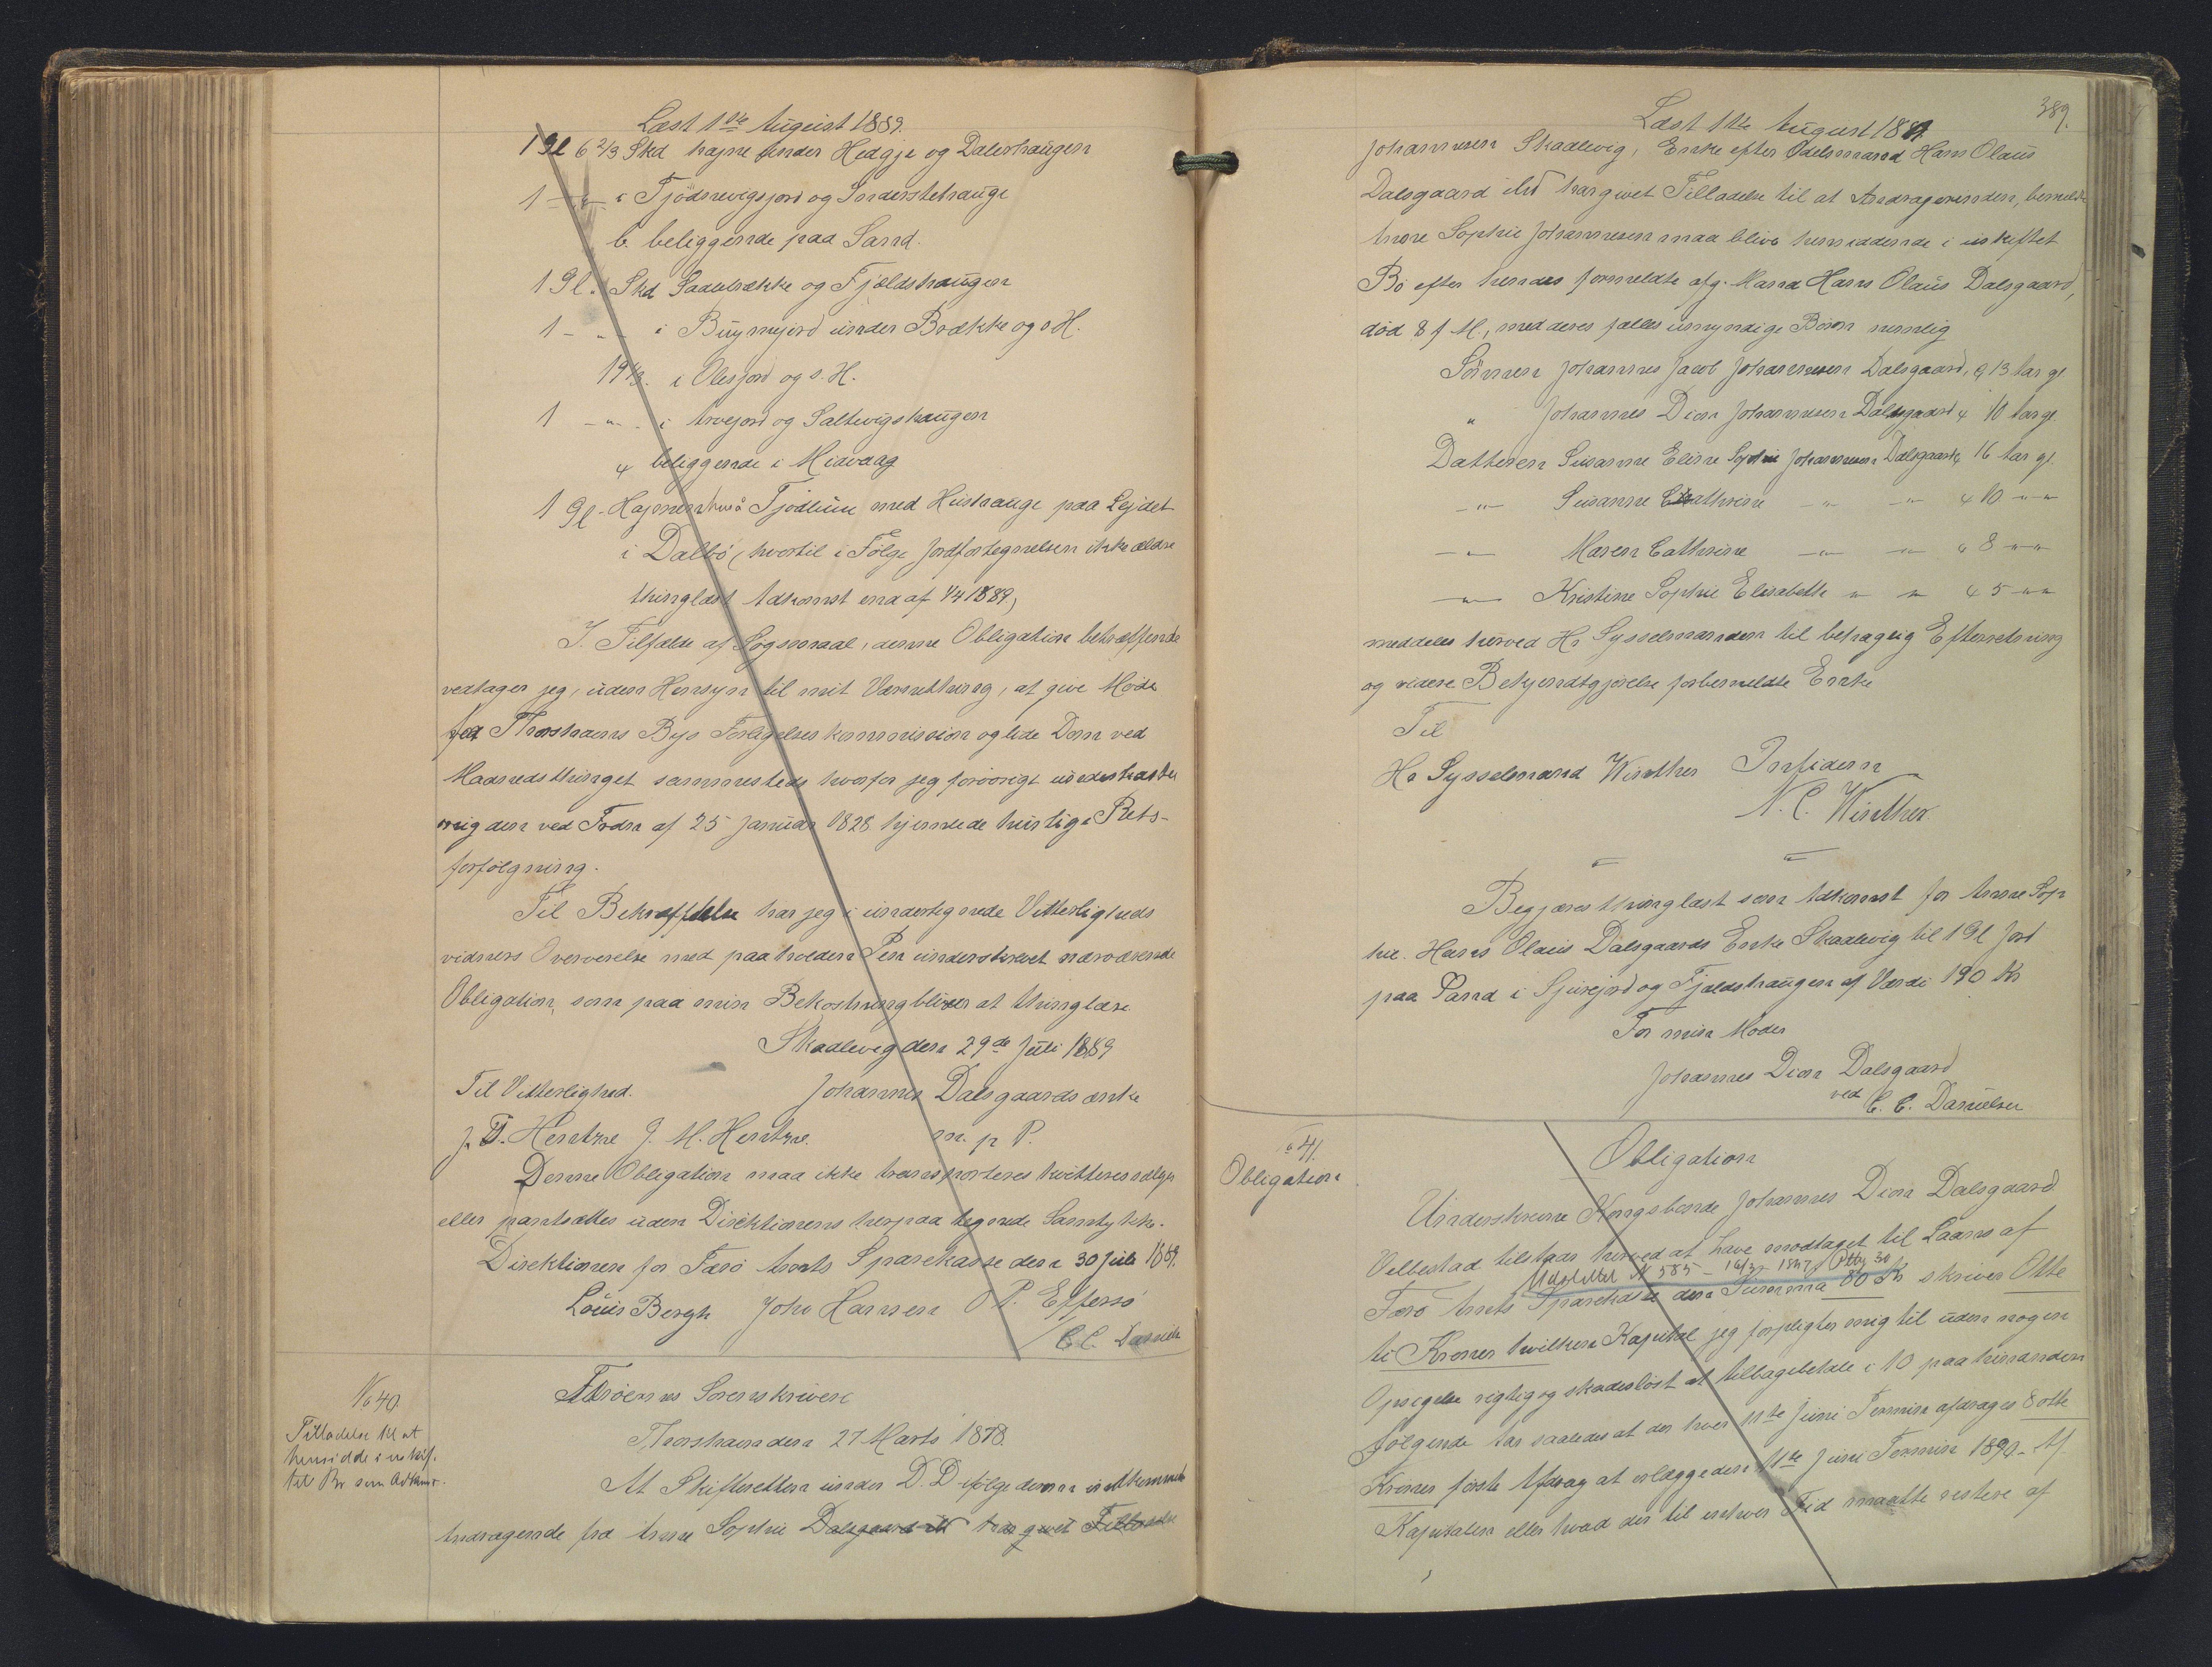 Læst 1ste August 1889.
1 Gl 6 2/3 Skd hajne under Hedgje og Dalerhaugen
1 — " — i Tjödnevigsjord og Inderstehauge
b. beliggende paa Sand.
1 Gl. Skd Saadebrække og Fjældshaugen
1 - " - i Buynnjord under Brække og s. H.
i Olesjord og s. H.
1 - " - i Arvejord og Saltvigshaugen
beliggende i Midvaag
1 Gl. med Hushauge paa Lejdet
i Dalbö (hvortil i Følge Jordfortegnelsen ikke ældre
thinglæst Adkomst end af 1/4 1889)
I Tilfælde af Søgsmaal, denne Obligation betræffende
vedtager jeg, uden Hensyn til mit Værnething, at give Møde
for Thorshavns Byes Forligelseskommission og lide Dom ved
Maanedsthinget sammesteds hvorfor jeg forøvrigt underkaster
mig den ved Frdn af 25 Januar 1828 hjemlede hurtige Rets-
forfølgning.
Til Bekræftelse har jeg i undertegnede Vitterligheds
vidners Overværelse med paaholden Pen underskrevet nærværende
Obligation, som paa min Bekostning bliver at thinglæse.
Skaalevig den 29de Juli 1889
Til Vitterlighed. Johannes Dalsgaards enke
J. D. Hentze J. M. Hentze. m. p. P.
Denne Obligation maa ikke transporteres kvitteres sælges
eller pantsættes uden Direktionens herpaa tegnede Samtykke.
Direktionen for Færø Amts Sparekasse den 30 Juli 1889.
Louis Bergh John Hansen O P. Effersö
/ C. C. Danielsen
No 40.
Tilladelse til at
hensidde i uskif-
tet Bo som Adkomst.
Færöernes Sorenskriveri
Thorshavn den 27 Marts 1878.
At Skifteretten under D. D. ifølge derom indkommende
Andragende fra Anne Sophie Dalsgaard ibd har givet Tilladelse
389.
Læst 1ste August 1889.
Johannesen Skaalevig, Enke efter Odelsmand Hans Olaus
Dalsgaard ibd har givet Tilladelse til at Andragerinden, bemeldte
Anne Sophie Johannesen maa blive hensiddende i uskiftet
Bo efter hendes formeldte afg. Mand Hans Olaus Dalsgaard,
død 8 f. M., med deres fælles umyndige Børn nemlig
Sønnen Johannes Jacob Johannesen Dalsgaard, 13 Aar gl.
" Johannes Dion Johannesen Dalsgaard 10 Aar gl.
Datteren Susanne Eline Sophie Johannesen Dalsgaard 16 Aar gl.
— " — Susanne Cathrine — " — — " — 10 " "
— " — Maren Cathrine — " — — " — 8 " "
— " — Kristine Sophie Elisabeth " " 5 " "
meddeles herved Hr Sysselmanden til behagelig Efterretning
og videre Bekjendtgjørelse for bemeldte Enke
Til
Hr Sysselmand Winther In fidem
N. C. Winther.
Begjæres thinglæst som Adkomst for Anne Sop
hie Hans Olaus Dalsgaards Enke Skaalevig til 1 Gl Jord
paa Sand i Sjurejord og Fjældshaugen af Værdi 190 Kr
For min Moder
Johannes Dion Dalsgaard
ved C. C. Danielsen
" 41.
Obligation
Obligation
Underskrevne Kongsbonde Johannes Dion Dalsgaard
Velbestad tilstaar herved at have modtaget til Laans af
Udslettet No 585 - 1897
Færø Amts Sparekasse den Summa 80 Kr skriver Otte
ti Kroner hvilken Kapital jeg forpligter mig til uden nogen
Opsigelse rigtig og skadesløst at tilbagebetale i 10 paa hinanden
følgende Aar saaledes at der hver 11te Juni Termin afdrages 8 otte
Kroner første Afdrag at erlægge den 11te Juni Termin 1890. Af
Kapitalen eller hvad der til enhver Tid maatte restere af